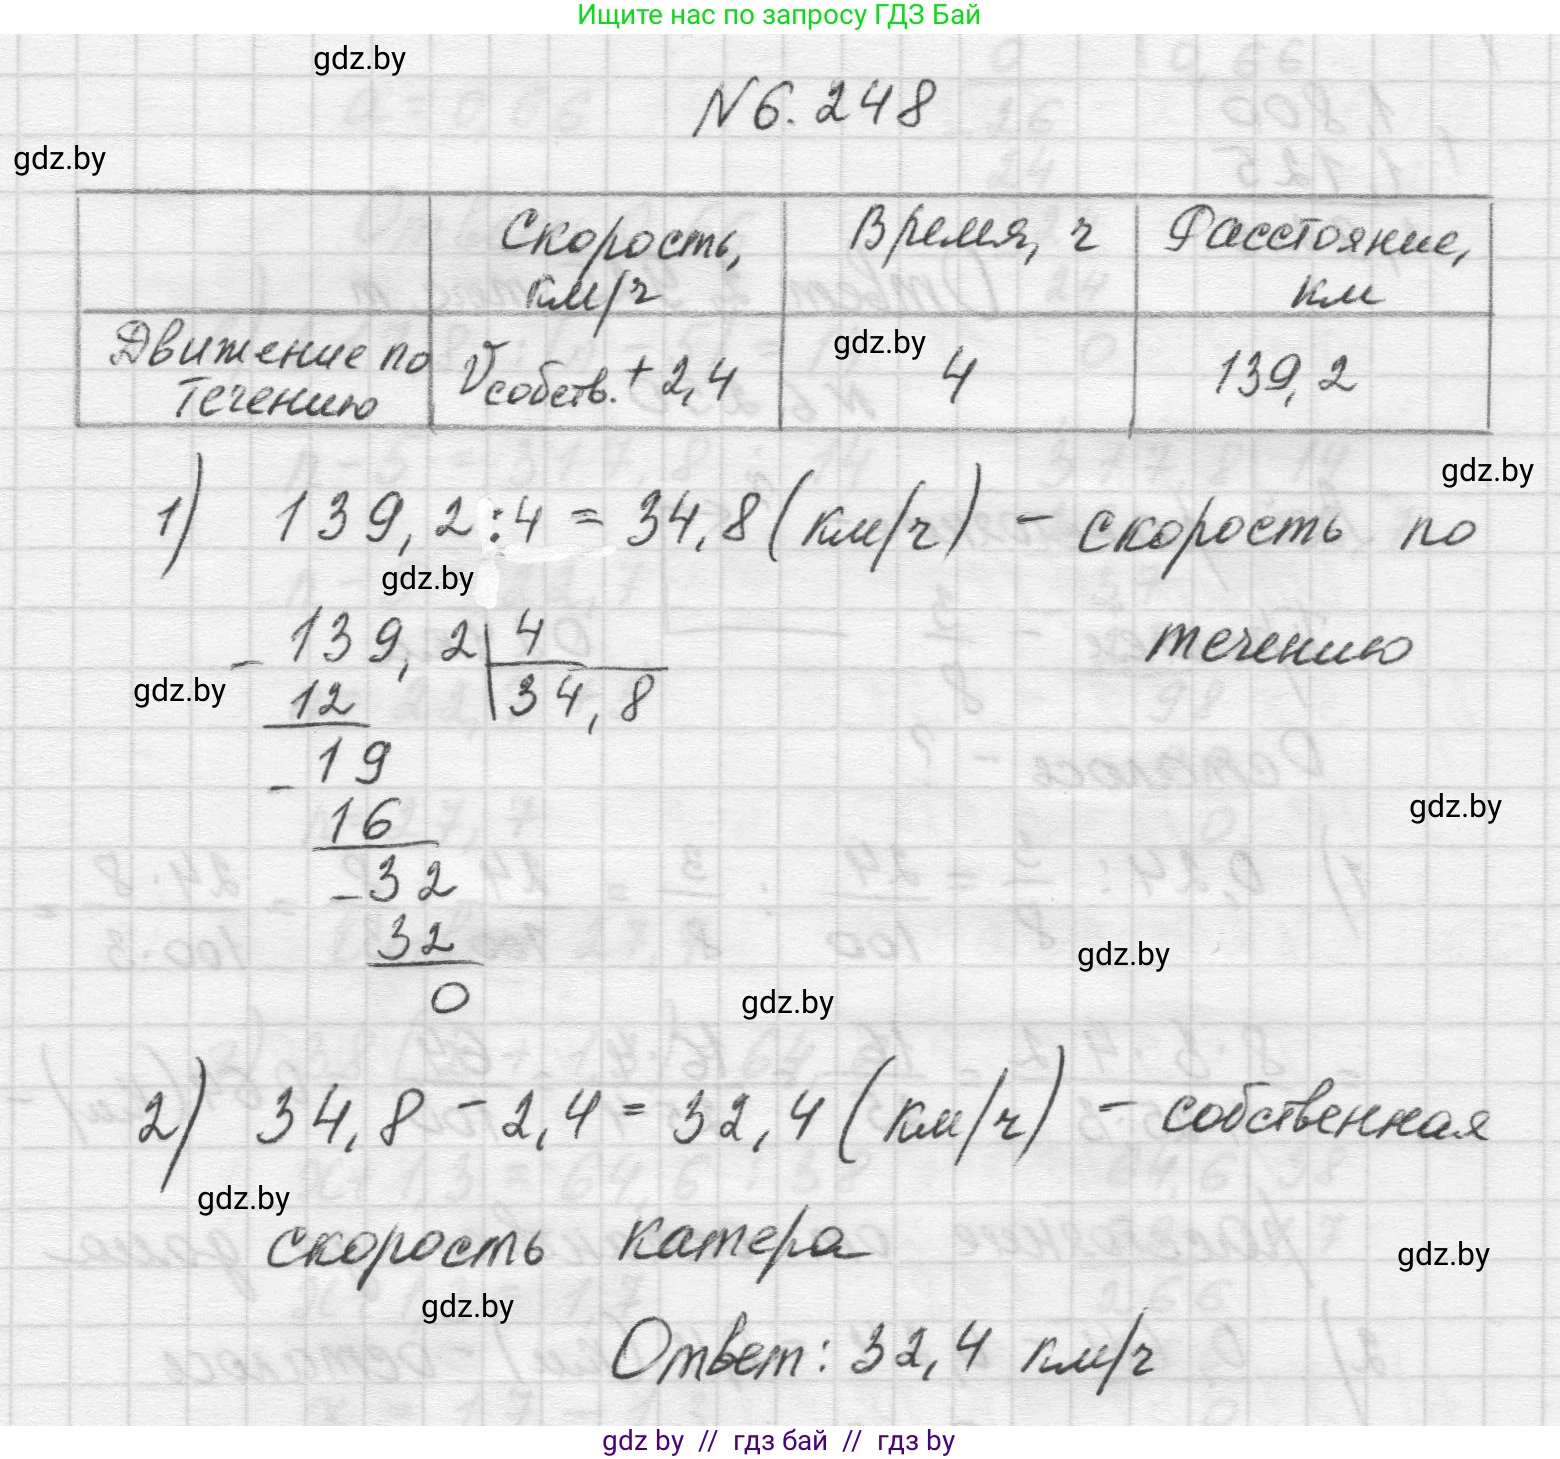 Ищите нас по запросу ГДЗ Бай
gdz.by
№6.248
gdz.by
Скорость, км/ч
Время, ч
Расстояние, км
Движение по течению
Vсобств. + 2,4
gdz.by
4
139,2
gdz.by
1) 139,2:4 = 34,8 (км/ч) - скорость по
gdz.by
течению
- 139,2 4
gdz.by
12 34,8
- 19
16
gdz.by
- 32
32
gdz.by
0
gdz.by
2) 34,8 - 2,4 = 32,4 (км/ч) - собственная
gdz.by
скорость катера
gdz.by
gdz.by
Ответ: 32,4 км/ч
gdz by // гдз бай // гдз by